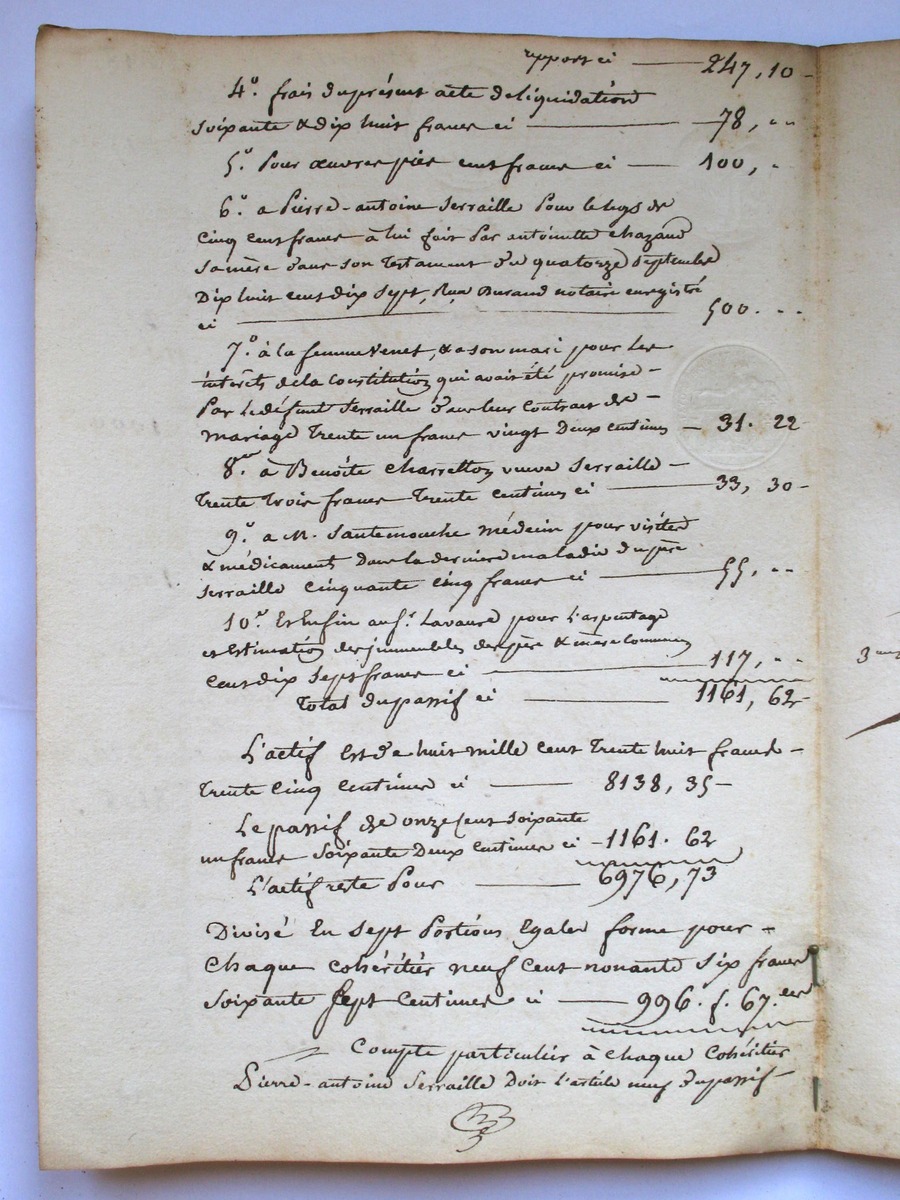 report ci — 247, 10 -
4.º frais du présent acte de liquidation
soixante & dix huit francs ci — 78, " "
5.º Pour œuvres pies cent francs ci — 100, "
6.º a Pierre-antoine Serraille Pour le legs de
Cinq cent francs à lui fait Par antoinette chazaud
sa mère dans son Testament du quatorze septembre
Dix huit cent dix sept, Durand notaire enregistré
ci — 500. " "
7.º à la femme Venet, & a son mari pour les
intérêts de la Constitution qui avait été promise -
Par le défunt Serraille dans leur Contrat de -
mariage Trente un francs vingt Deux centimes - 31. 22
8.º à Benoîte Charretton veuve Serraille -
Trente Trois francs Trente centimes ci — 33, 30 -
9.º a M. Santemouche Médecin pour visites
& médicaments Dans la derniere maladie du père
Serraille Cinquante Cinq francs ci — 55, " "
10.º Et Enfin au Sr. Lavaure pour L'arpentage
et Estimation des immeubles des père & mère communs
Cent dix Sept francs ci — 117, " "
Total du passif ci — 1161, 62
L'actif Est de huit mille Cent Trente huit francs -
Trente Cinq Centimes ci — 8138, 35 -
Le passif de onze Cent Soixante
un francs Soixante Deux Centimes ci - 1161. 62
L'actif reste Pour — 6976, 73
Divisé En Sept Portions Egales forme pour -
Chaque cohéritier neuf Cent nonante Six francs
Soixante Sept Centimes ci — 996. f. 67. ces
Compte particulier à chaque Cohéritier
Pierre-antoine Serraille Doit L'article neuf du passif -